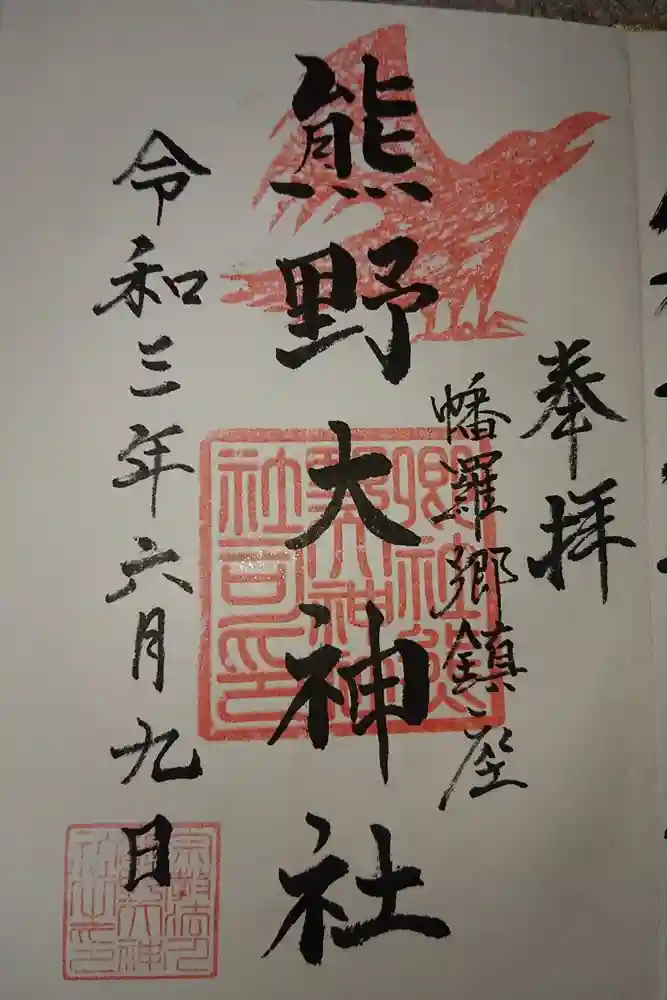 奉拝
幡羅郷鎮座
熊野大神社
令和三年六月九日